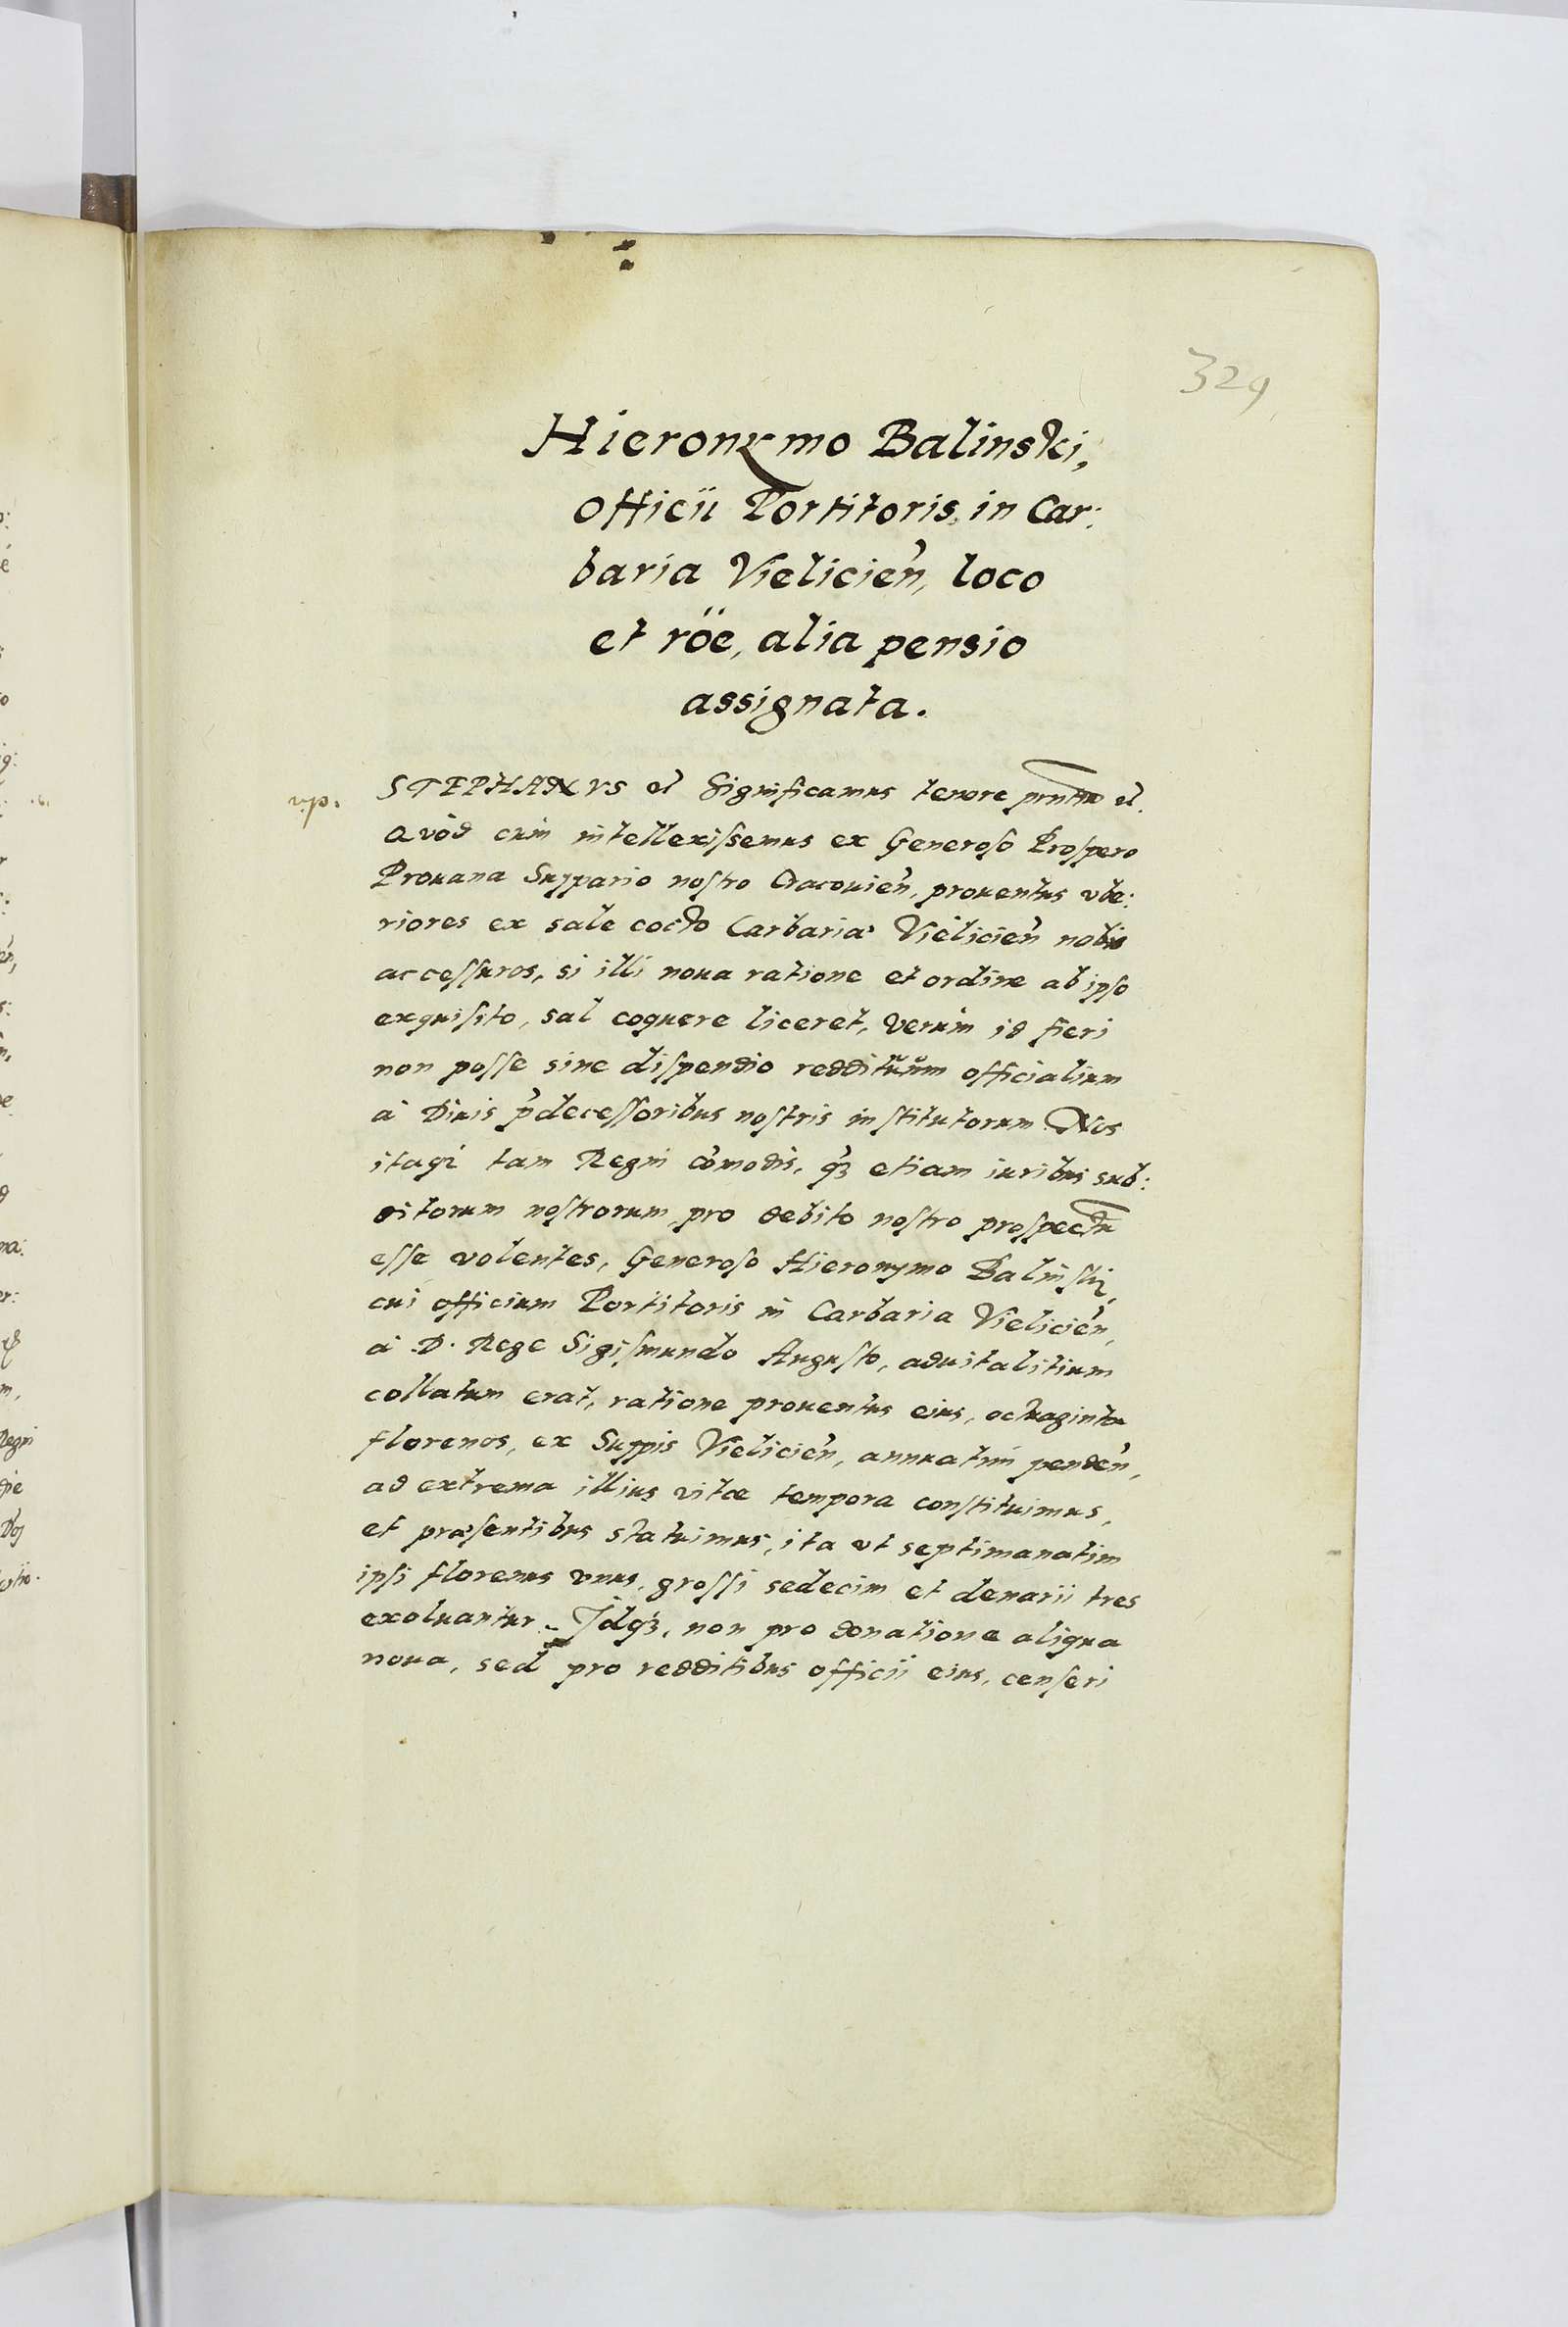 329
Hieronymo Balinski,
officii Portitoris, in Car:
baria Vielicień, loco
et röe, alia pensio
assignata.
STEPHANVS et Significamus tenore pntiu et.
Quód cum intellexissemus ex Generoso Prospero
Prouana Suppario nostro Cracouień, prouentus vbe:
riores ex sale cocto Carbariæ Vielicień nobis
accessuros, si illi noua ratione et ordine ab ipso
exquisito, sal coquere liceret, verum id fieri
non posse sine dispendio reddituum officialium
à Diuis p̃decessoribus nostris institutorum Nos
itaq́ʒ tam Regni cõmodis, q̃ʒ etiam iuribus sub:
ditorum nostrorum, pro debito nostro prospectu
esse volentes, Generoso Hieronymo Balinski,
cui officium Portitoris in Carbaria Vielicień,
à D. Rege Sigismundo Augusto, aduitalitium
collatum erat, ratione prouentus eius, octuaginta
florenos, ex Suppis Vielicień, annuatim pendeń,
ad extrema illius vitæ tempora constituimus,
et præsentibus statuimus, ita vt septimanatim
ipsi florenus vnus, grossi sedecim et denarii tres
exoluantur. Idq́ʒ, non pro donatione aliqua
noua, sed pro redditibus officii eius, censeri